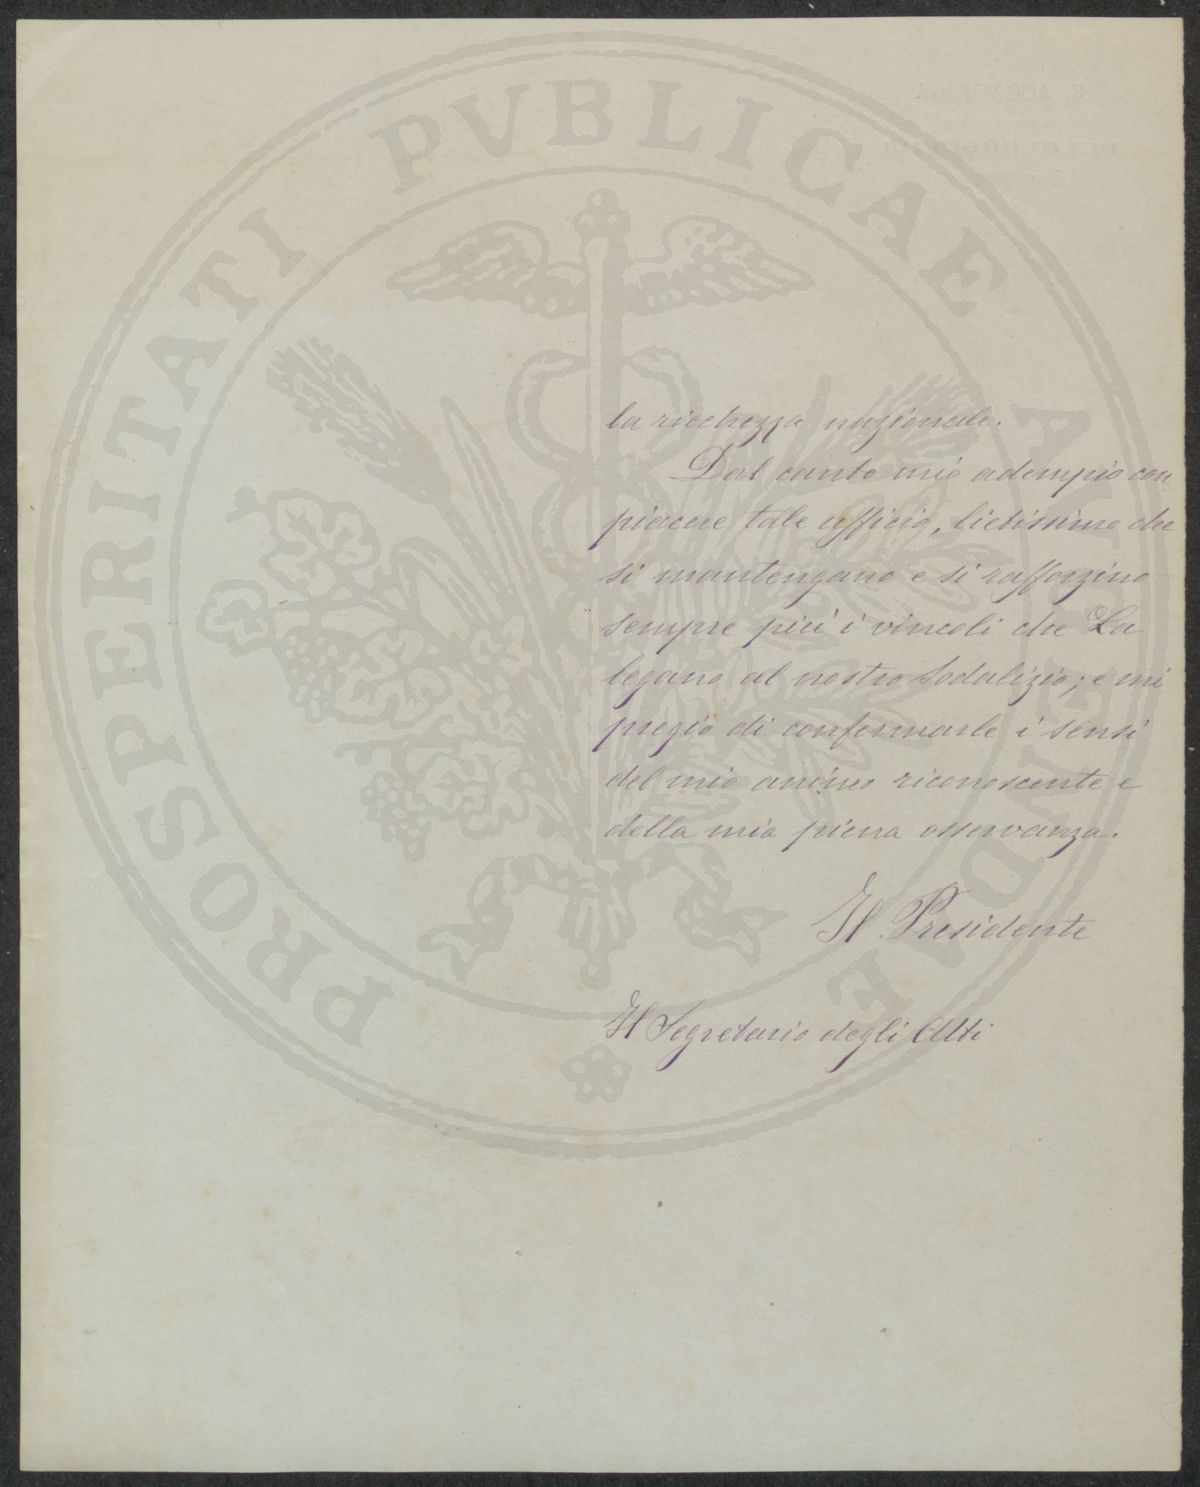 la ricchezza nazionale.
Dal canto mio adempio con
piacere tale ufficio, lietissimo che
si mantengano e si rafforzino
sempre più i vincoli che La
legano al nostro Sodalizio; e mi
pregio di confermarle i sensi
del mio animo riconoscente e
della mia piena osservanza.
Il Presidente
Il Segretario degli Atti
PROSPERITATI PVBLICAE AVGENDAE